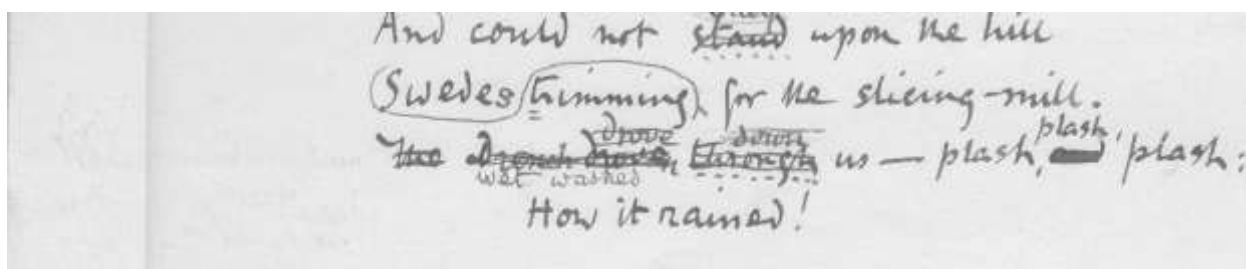 And could not stand upon the hill
Swedes trimming for the slicing-mill.
drove down plash,
The Drench drove, through us — plash, plash:
wet washed
How it rained!